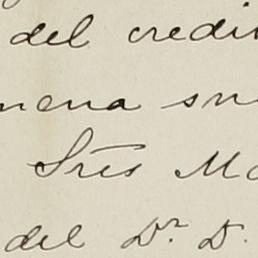 del credi
mena su
Sres Ma
del Dr. D.